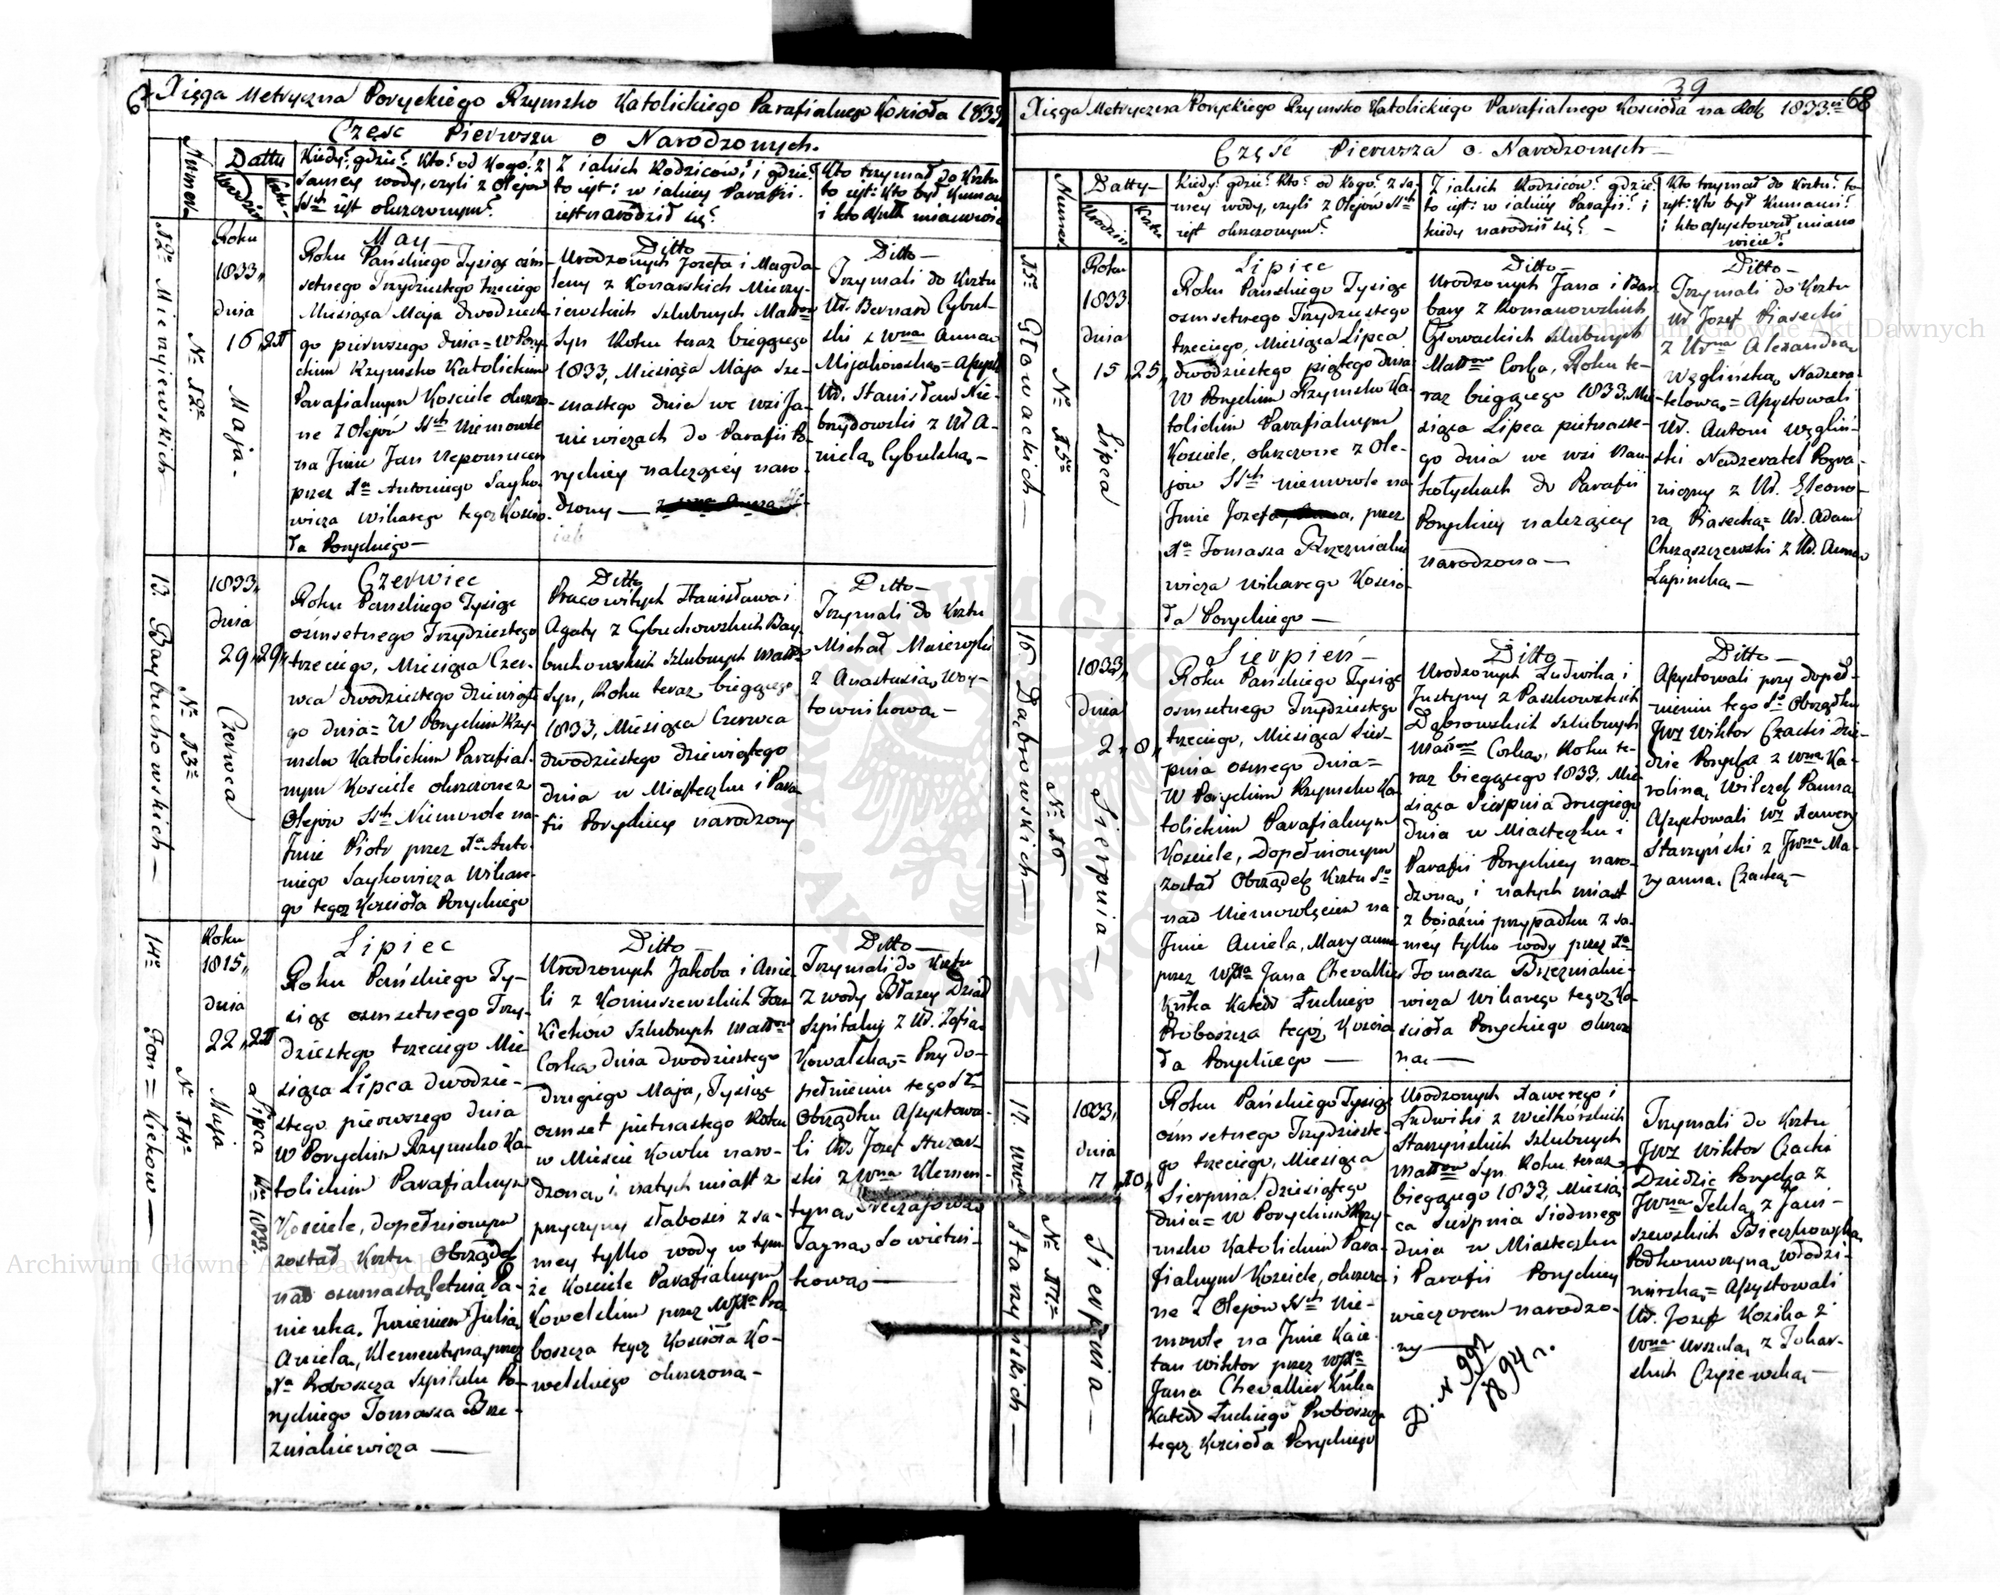 67
Xięga Metryczna Poryckiego Rzymsko Katolickiego Parafialnego Kościoła 1833
Część Pierwsza o Narodzonych.
Numer
Datty
Urodzin
Kiedy? gdzie? Kto? od Kogo? z
samey wody, czyli z Olejów
SSch iest ochrzczonym?
Z iakich Rodziców? i gdzie?
to iest: w iakiey Parafii.
iest narodził się?
Kto trzymał do Krztu
to iest: kto był Kumami
N 12
Mierzyiewskich
Nº 12º
Roku
1833,,
dnia
16 21
Maja
May
Roku Pańskiego Tysiąc óśm-
setnego Trzydziestego trzeciego
Miesiąca Maja dwudziest-
go pierwszego dnia = W Pory-
ckim Rzymsko Katolickim
Parafialnym Kościele ochrzczo-
ne z Olejów SSch Niemowle
na Jmie Jan Nepomucen
przez Xa Antoniego Sayko-
wicza Wikarego tegoż Kościo-
ła Poryckiego —
Ditto
Urodzonych Jozefa i Magda-
leny z Kossarskich Mierzy-
iewskich Szlubnych Małłow
Syn Roku teraz bieggcego
1833, Miesiąca Maja Sze-
snastego dnia we wsi Ja-
niewiczach do Parafii Po-
ryckiey należącéy naro-
dzony —
Ditto —
Trzymali do Krztu
Ur. Bernard Cybul-
ski z Wna Anna
Mijakowska = Assyst
Ur. Stanisław Nie-
brzydowski z Ur A-
niela Cybulska —
13. Baybuchowskich —
Nº 13º
1833,,
dnia
29,, 29,,
Czerwca
Czerwiec
Roku Pańskiego Tysiąc
ośmsetnego Trzydziestego
trzeciego, Miesiąca Czer-
wca dwudziestego dziewiąte
go dnia = W Poryckim Rzy-
msko Katolickim Parafial-
nym Kościele ochrzczone z
Olejów SSch Niemowle na
Jmie Piotr przez Xa Anto-
niego Saykowicza Wikare-
go tegoż Kościoła Poryckiego
Ditto
Pracowitych Stanisława i
Agaty z Cybuchowskich Bay-
buchowskich Szlubnych Małłow
Syn, Roku teraz bieggcego
1833, Miesiąca Czerwca
dwudziestego dziewiątego
dnia w Miasteczku i Para-
fii Poryckiey narodzony
Ditto —
Trzymali do Krztu
Michał Maiewski
z Anastasia Woy-
townikowa —
14º Fon = Kieków —
Nº 14º
Roku
1815,,
dnia
22,, 21
Maja
Lipca Rku 1833.
Lipiec
Roku Pańskiego Ty-
siąc osmsetnego Trzy-
dziestego trzeciego Mie
siąca Lipca dwudzie-
stego pierwszego dnia
W Poryckim Rzymsko Ka-
tolickim Parafialnym
Kościele, dopełnionym
został Krztu Obrządek
nad osmnastoletnią Pa-
nienka, Jmieniem Julia,
Aniela, Klementyna, przez
Xa Proboszcza Szpitalu Po-
ryckiego Tomasza Brze-
zniakiewicza —
Ditto —
Urodzonych Jakoba i Anie-
li z Koniuszewskich Fon
Kieków Szlubnych Małłow
Corka dnia dwudziestego
drugiego Maja, Tysiąc
osmset piętnastego Roku
w Mieście Kowlu naro-
dzona, i natych miast z
przyczyny słabości z sa-
mey tylko wody w tym
że Kościele Parafialnym
Kowelskim przez WJXa Pro
boszcza tegoż Kościoła Ko-
welskiego ochrzczona —
Ditto —
Trzymali do Krztu
Z wody Błażey Dziad
Szpitalny z Ur. Zofia
Kowalska = Przy do-
pełnieniu tego St.
Obrządku Assystowa-
li Ur. Jozef
ski z Wna Klemen-
tyna
39
68
Xięga Metryczna Poryckiego Rzymsko Katolickiego Parafialnego Kościoła na Rok 1833.
Część Pierwsza o Narodzonych —
Numer
Datty —
Urodzin
Krztu
Kiedy? gdzie? Kto? od Kogo? z sa-
mey wody, czyli z Olejów SSch
iest ochrzczonym?
Z iakich Rodziców? gdzie?
to iest: w iakiey Parafii? i
kiedy narodził się? —
Kto trzymał do Krztu? to-
iest: Kto był Kumami?
i kto Assystował miano
wicie?
15º Głowackich —
Nº 15º
Roku
1833
dnia
15,, 25,,
Lipca
Lipiec
Roku Pańskiego Tysiąc
osmsetnego Trzydziestego
trzeciego, Miesiąca Lipca
dwudziestego piątego dnia
W Poryckim Rzymsko Ka-
tolickim Parafialnym
Kościele, ochrzczone z Ole-
jow SSch niemowle na
Jmie Jozefa, przez
Xa Tomasza Brzezniakie
wicza Wikarego Kościo-
ła Poryckiego —
Ditto —
Urodzonych Jana i Bar-
bary z Romanowskich
Głowackich Szlubnych
Małłow Corka, Roku te-
raz bieggcego 1833, Mie-
siąca Lipca pietnaste-
go dnia we wsi
do Parafii
Poryckiey należącey
narodzona —
Ditto —
Trzymali do Krztu
Ur Jozef Piasecki
z Urna Alexandra
Węglińska, Nadzera-
telowa = Assystowali
Ur. Antoni Węgliń-
ski Nadzeratel Pogra-
niczny z Ur. Eleono-
ra, Piasecka = Ur. Adam
Chrząszczewski z Ur. Anna
Łapinska —
16º Dąbrowskich —
Nº 16
1833,,
dnia
2,, 8,,
Sierpnia —
Sierpień —
Roku Pańskiego Tysiąc
osmsetnego Trzydziestego
trzeciego, Miesiąca Sier-
pnia osmego dnia =
W Poryckim Rzymsko Ka-
tolickim Parafialnym
Kościele, Dopełnionym
został Obrządek Krztu So
nad Niemowlęciem na
Jmie Aniela, Maryanna
przez WJXa Jana Chevallier
Knka Katedr Łuckiego
Proboszcza tegoż Kościo
ła Poryckiego —
Ditto
Urodzonych Ludwika i
Justyny z Paszkowskich
Dąbrowskich Szlubnych
Małłow Corka, Roku te-
raz bieggcego 1833. Mie-
siąca Sierpnia drugiego
dnia w Miasteczku i
Parafii Poryckiey naro-
dzona, i natych miast
z boiaźni przypadku z sa-
mey tylko wody przez Xa
Tomasza Brzezniakie-
wicza Wikarego tegoż Ko-
ścioła Poryckiego ochrzczo
na —
Ditto —
Assystowali przy dopeł-
nieniu tego So Obrządku
JWJ Wiktor Czacki Dzie-
dzic Porycka z Wna Ka-
rolina Wilczek Panna
Assystowali WJ Xawery
Starzyński z JWna Ma-
ryanna Czacka —
17. Starzyńskich —
Nº 17º
1833,,
dnia
7,, 10,,
Sierpnia —
Roku Pańskiego Tysiąc
ośmsetnego Trzydzieste-
go trzeciego, Miesiąca
Sierpnia dziesiątego
dnia = W Poryckim Rzy-
msko Katolickim Para-
fialnym Kościele, ochrzczo-
ne z Olejów SSch Nie-
mowle na Jmie Kaie-
tan Wiktor przez WJXa
Jana Chevallier Knka
Katedr Łuckiego Proboszcza
tegoż Kościoła Poryckiego
Urodzonych Xawerego i
Ludwiki z Wielhorskich
Starzyńskich Szlubnych
Małłow Syn Roku teraz
bieggcego 1833, Miesią
ca Sierpnia Siodmego
dnia w Miasteczku
i Parafii Poryckiey
wieczorem narodzo-
ny —
D. N 992
1894 r.
Trzymali do Krztu
JWJ Wiktor Czacki
Dziedzic Porycka z
JWna Tekla z Jani-
szewskich Bieczkowska
Podkomorzyna Włodzi-
mirska = Assystowali
Ur. Jozef Kozika z
Wna Urszula z Tokar-
skich Czyżewska —
Archiwum Główne Akt Dawnych
Archiwum Główne Akt Dawnych